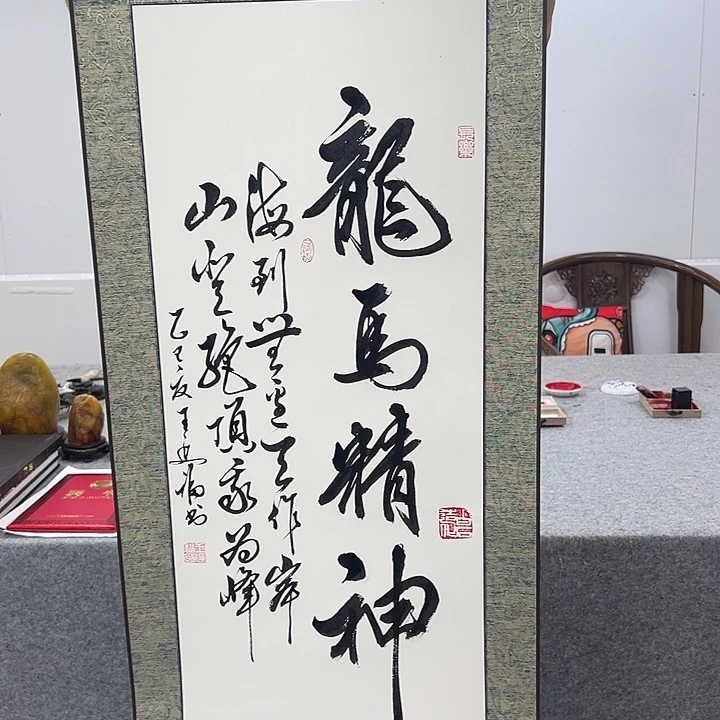 龍馬精神
海到無邊天作岸
山登絕頂我為峰